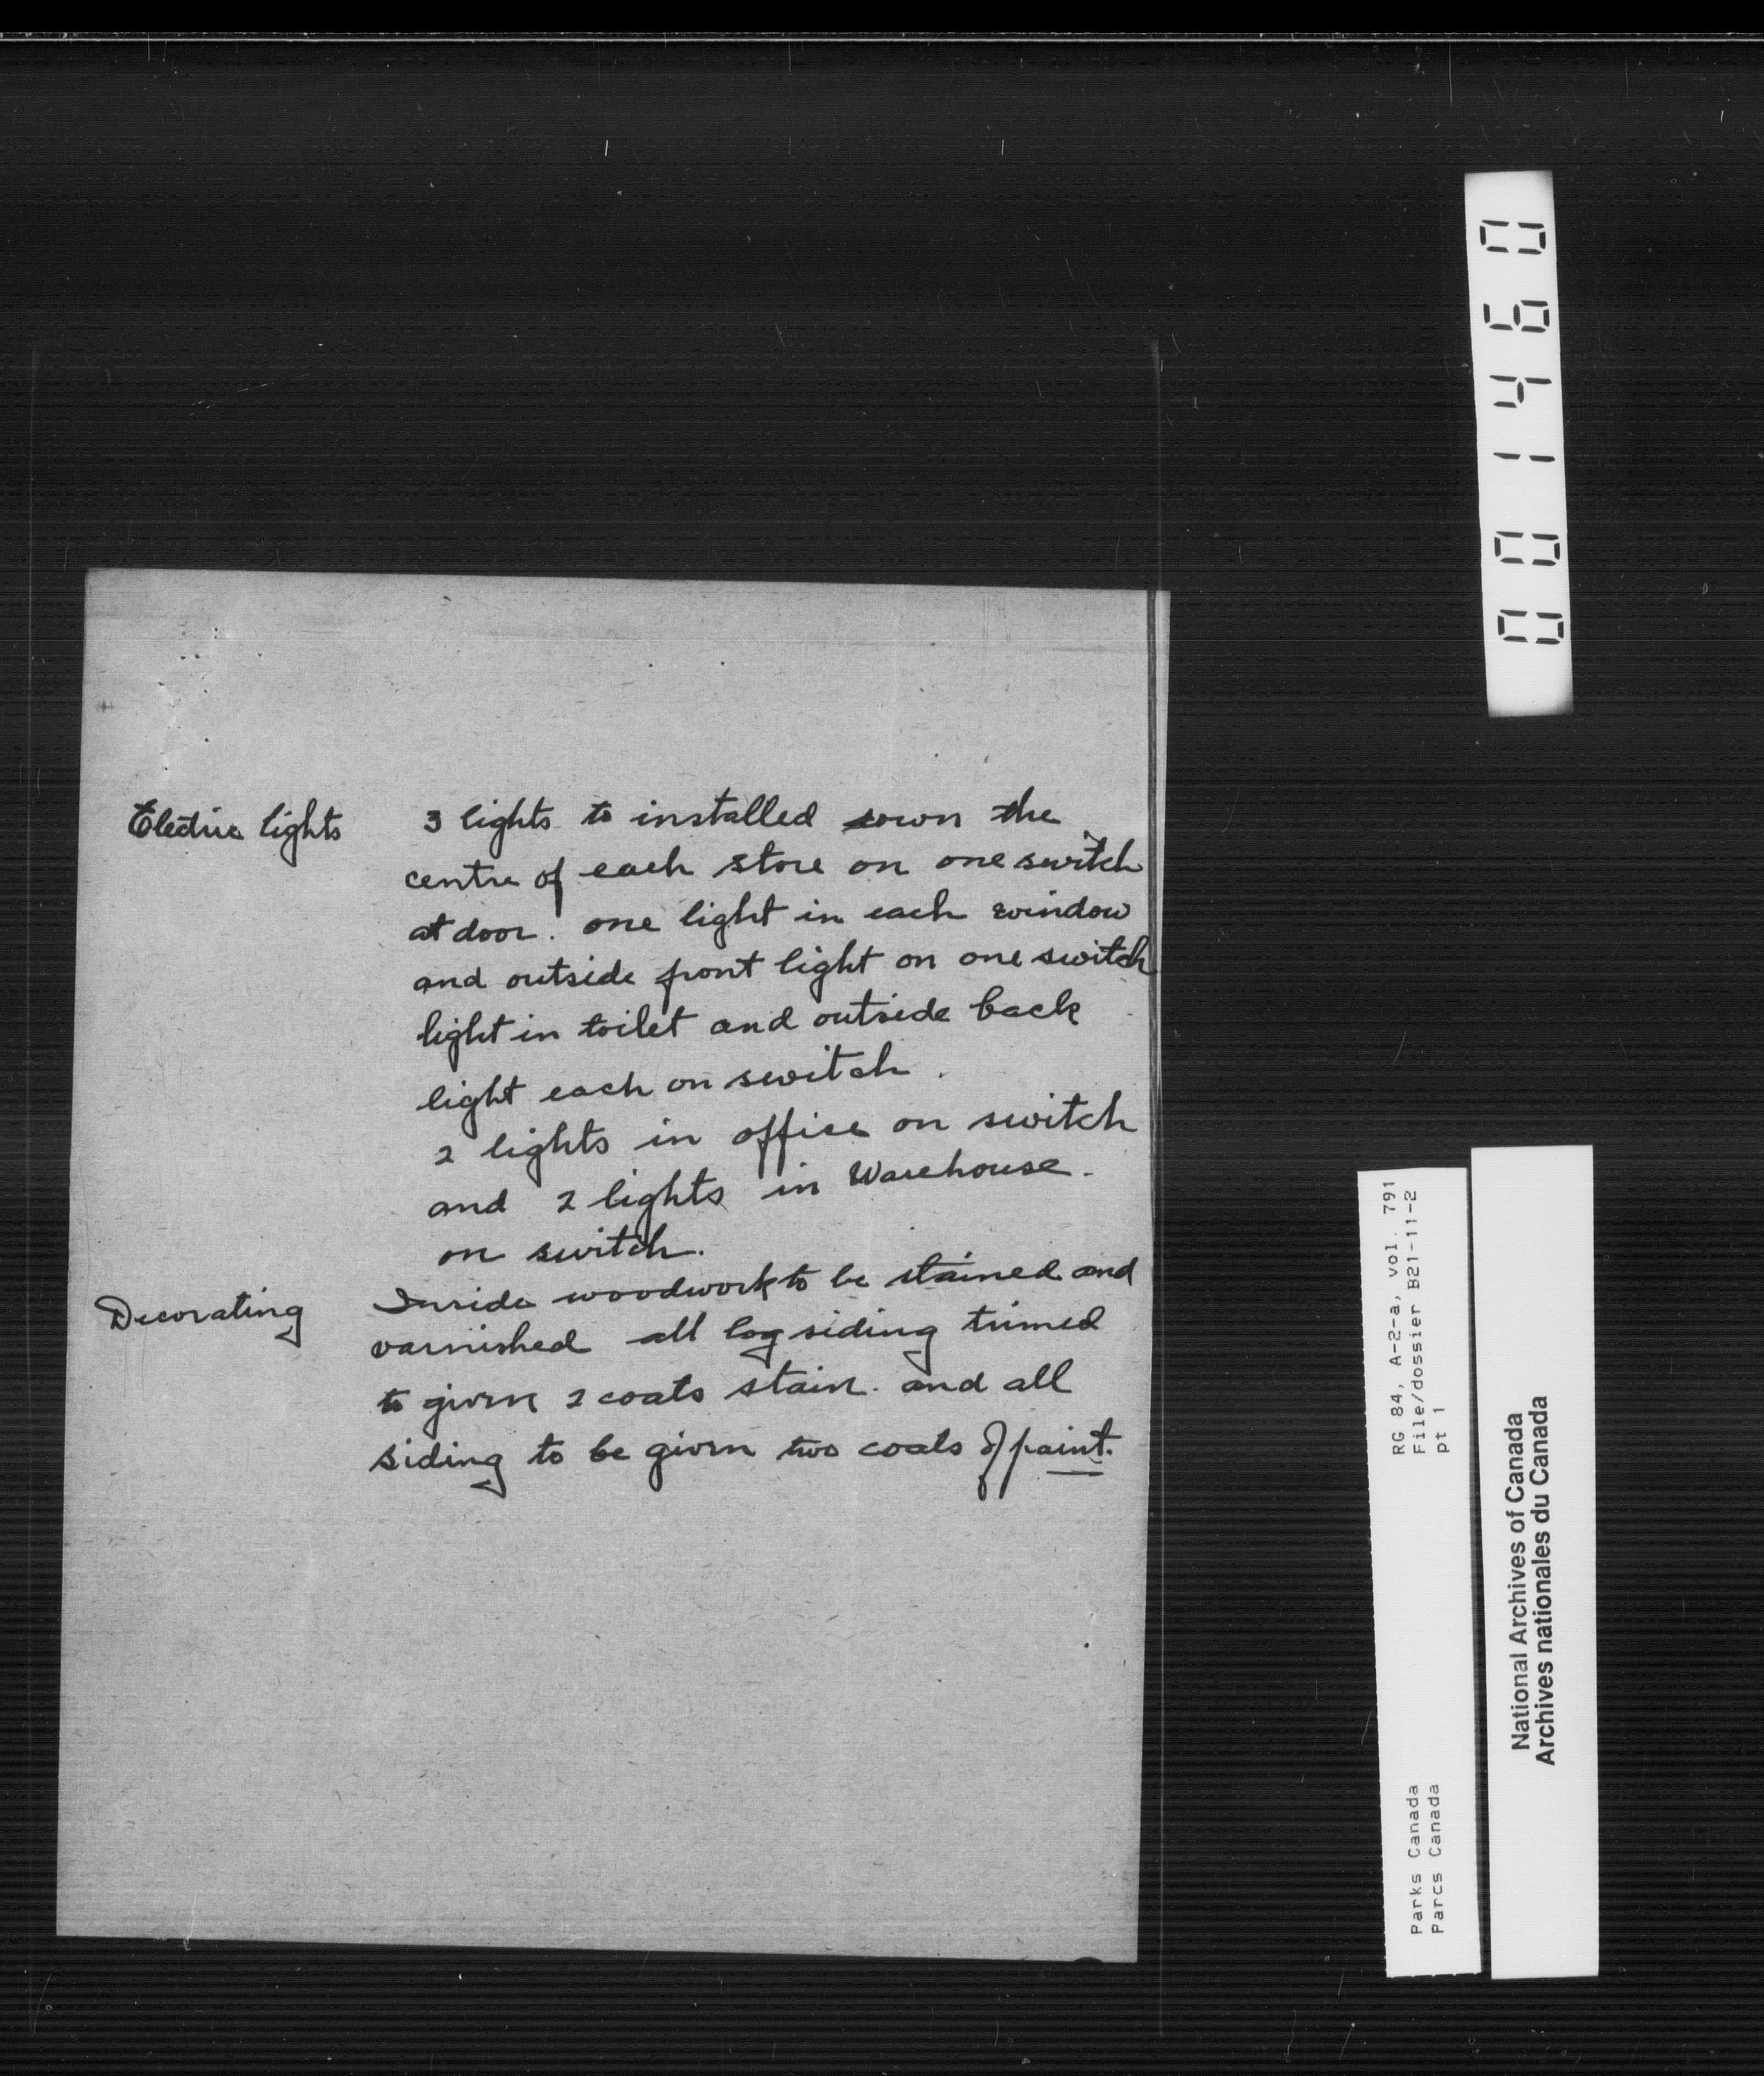 Electric lights 3 lights to installed down the
centre of each store on one switch
at door. one light in each window
and outside front light on one switch
light in toilet and outside back
light each on switch.
2 lights in office on switch
and 2 lights in Warehouse.
on switch.
Decorating Inside woodwork to be stained and
varnished all log siding trimed
to given 2 coats stain. and all
siding to be given two coats of paint.
001460
RG 84, A-2-a, vol. 791
File/dossier B21-11-2
pt 1
Parks Canada
Parcs Canada
National Archives of Canada
Archives nationales du Canada